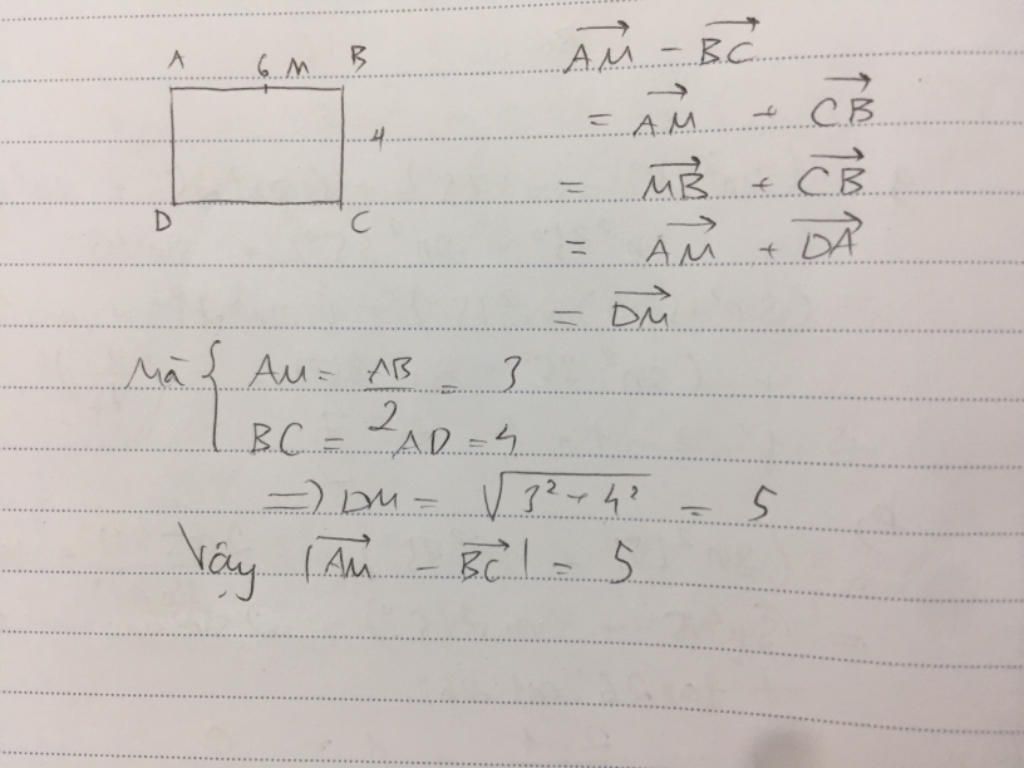 A 6 M B
4
D C
$\overrightarrow{AM} - \overrightarrow{BC}$
$= \overrightarrow{AM} + \overrightarrow{CB}$
$= \overrightarrow{MB} + \overrightarrow{CB}$
$= \overrightarrow{AM} + \overrightarrow{DA}$
$= \overrightarrow{DM}$
Mà { $AM = \frac{AB}{2} = 3$
$BC = AD = 4$
$\Rightarrow DM = \sqrt{3^2 + 4^2} = 5$
Vậy $|\overrightarrow{AM} - \overrightarrow{BC}| = 5$